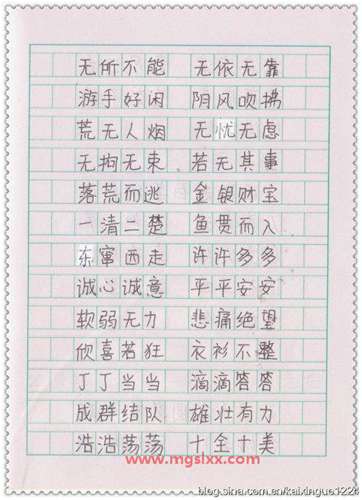 无所不能 无依无靠
游手好闲 阴风吹拂
荒无人烟 无忧无虑
无拘无束 若无其事
落荒而逃 金银财宝
一清二楚 鱼贯而入
东窜西走 许许多多
诚心诚意 平平安安
软弱无力 悲痛绝望
欣喜若狂 衣衫不整
丁丁当当 滴滴答答
成群结队 雄壮有力
浩浩荡荡 十全十美
www.mgslxx.com
blog.sina.com.cn/kaixingue1224